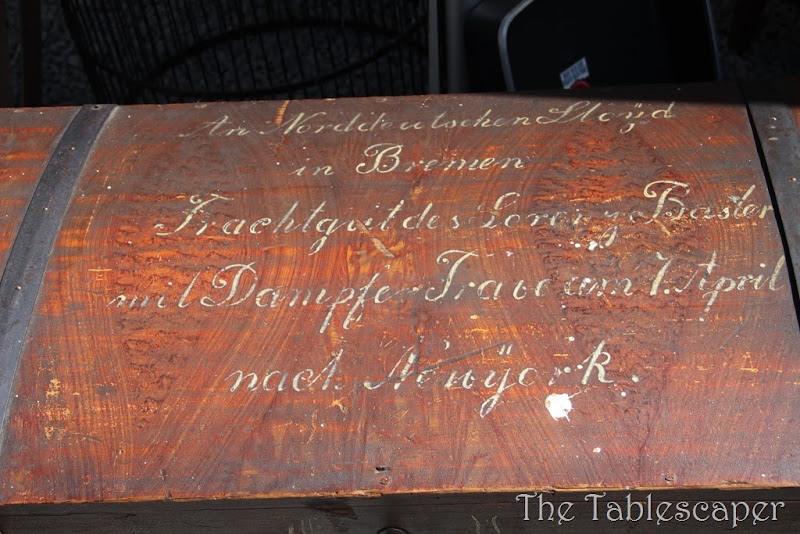 An Norddeutschen Lloÿd
in Bremen
Frachtgut des Lorenz Baster
mit Dampfer Trave am 7. April
nach Newÿork.
The Tablescaper